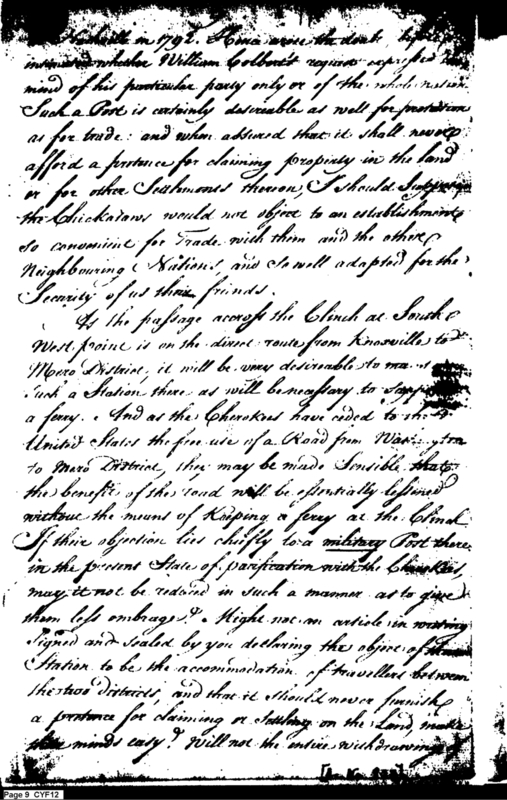 Nashville in 1792. Hence arose the doubt, before
intimated whether William Colbert's request expressed the
mind of his particular party only or of the whole nation
Such a Post is certainly desireable as well for protection
as for trade: and when assured that it shall never
afford a pretence for claiming property in the land
or for other Settlements thereon, I should Suppose
the Chickasaws would not object to an establishment
so convenient for Trade with them and the other
Neighbouring Nations, and so well adapted for the
Security of us their friends.
As the passage accross the Clinch at South
West point is on the direct route from Knoxville to
Mero District, it will be very desireable to
such a Station there as will be necessary to
a ferry. And as the Cherokees have ceded to the
United States the free use of a Road from
to Mero District, they may be made Sensible that
the benefit of the road will be essentially lessened
without the means of Keeping a ferry at the Clinch
If their objection lies chiefly to a military Post there
in the present State of pacification with the Cherokees,
may it not be reduced in such a manner as to give
them less umbrage? Might not an article in writing
Signed and sealed by you declaring the object of
Station to be the accommodation of travellers between
the two districts, and that it should never furnish
a pretence for claiming or Settling on the Land, make
their minds easy? Will not the entire withdrawing of
Page 9 CYF12